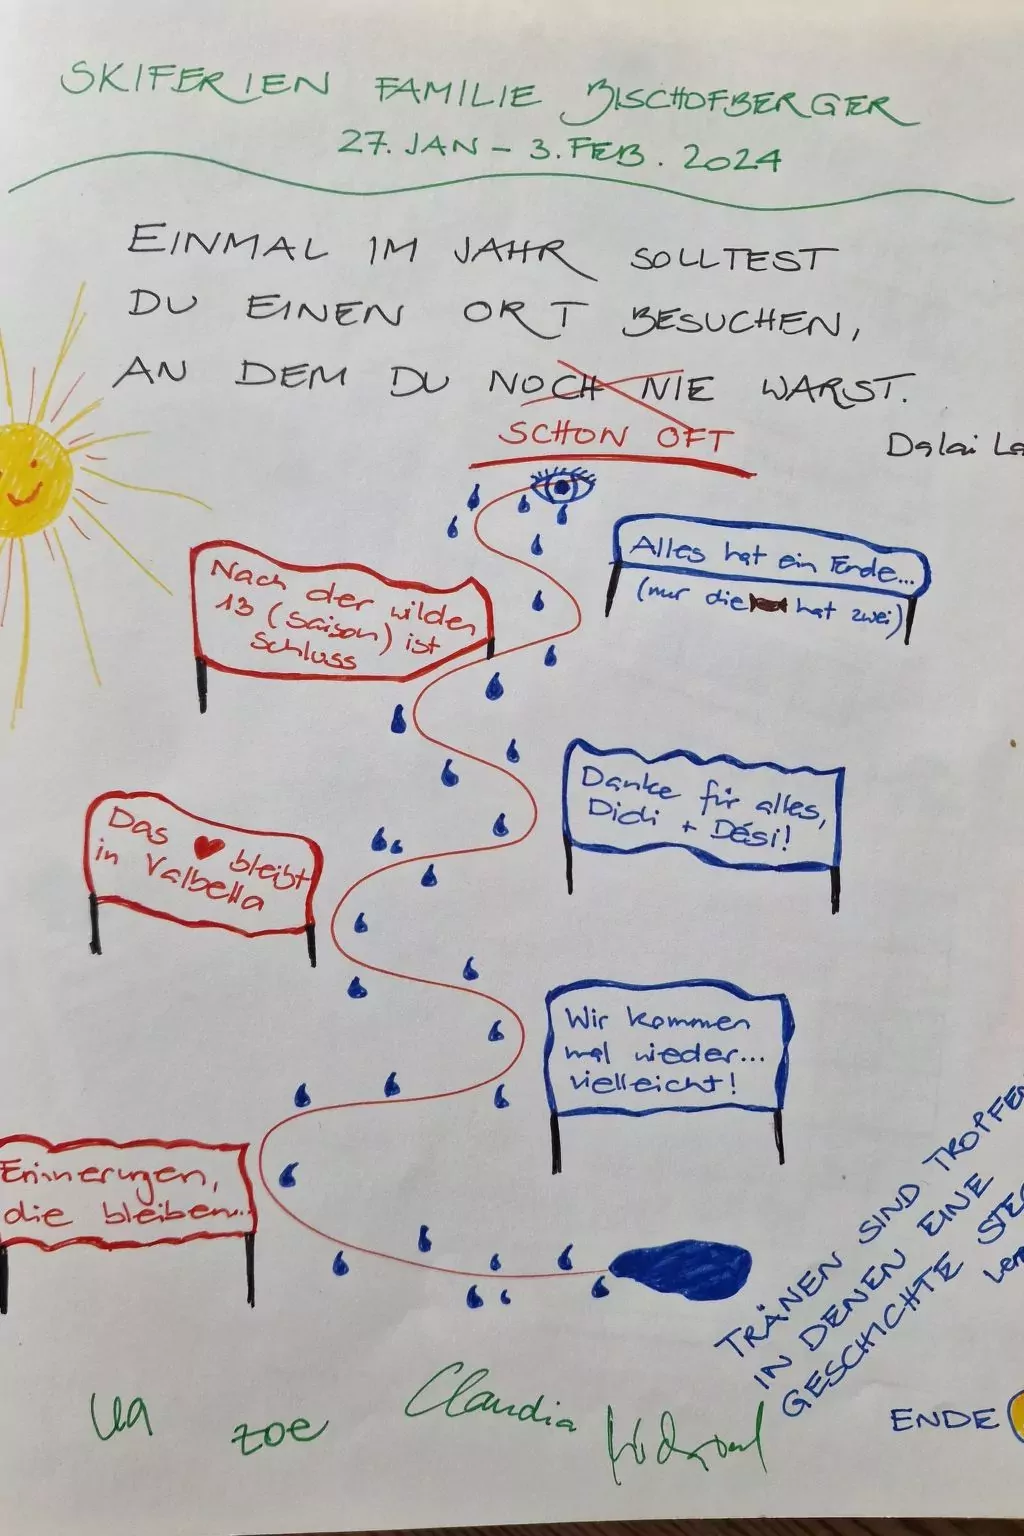 SKIFERIEN FAMILIE BISCHOFBERGER
27. JAN – 3. FEB. 2024
EINMAL IM JAHR SOLLTEST
DU EINEN ORT BESUCHEN,
AN DEM DU NOCH NIE WARST.
SCHON OFT
Dalai La
Alles hat ein Ende...
(nur die hat zwei)
Nach der wilden
13 (Saison) ist
Schluss
Danke für alles,
Didi + Dési!
Das ♥ bleibt
in Valbella
Wir kommen
mal wieder...
vielleicht!
Erinnerungen,
die bleiben...
TRÄNEN SIND TROPFEN
IN DENEN EINE
GESCHICHTE STEC
ENDE
zoe
Claudia